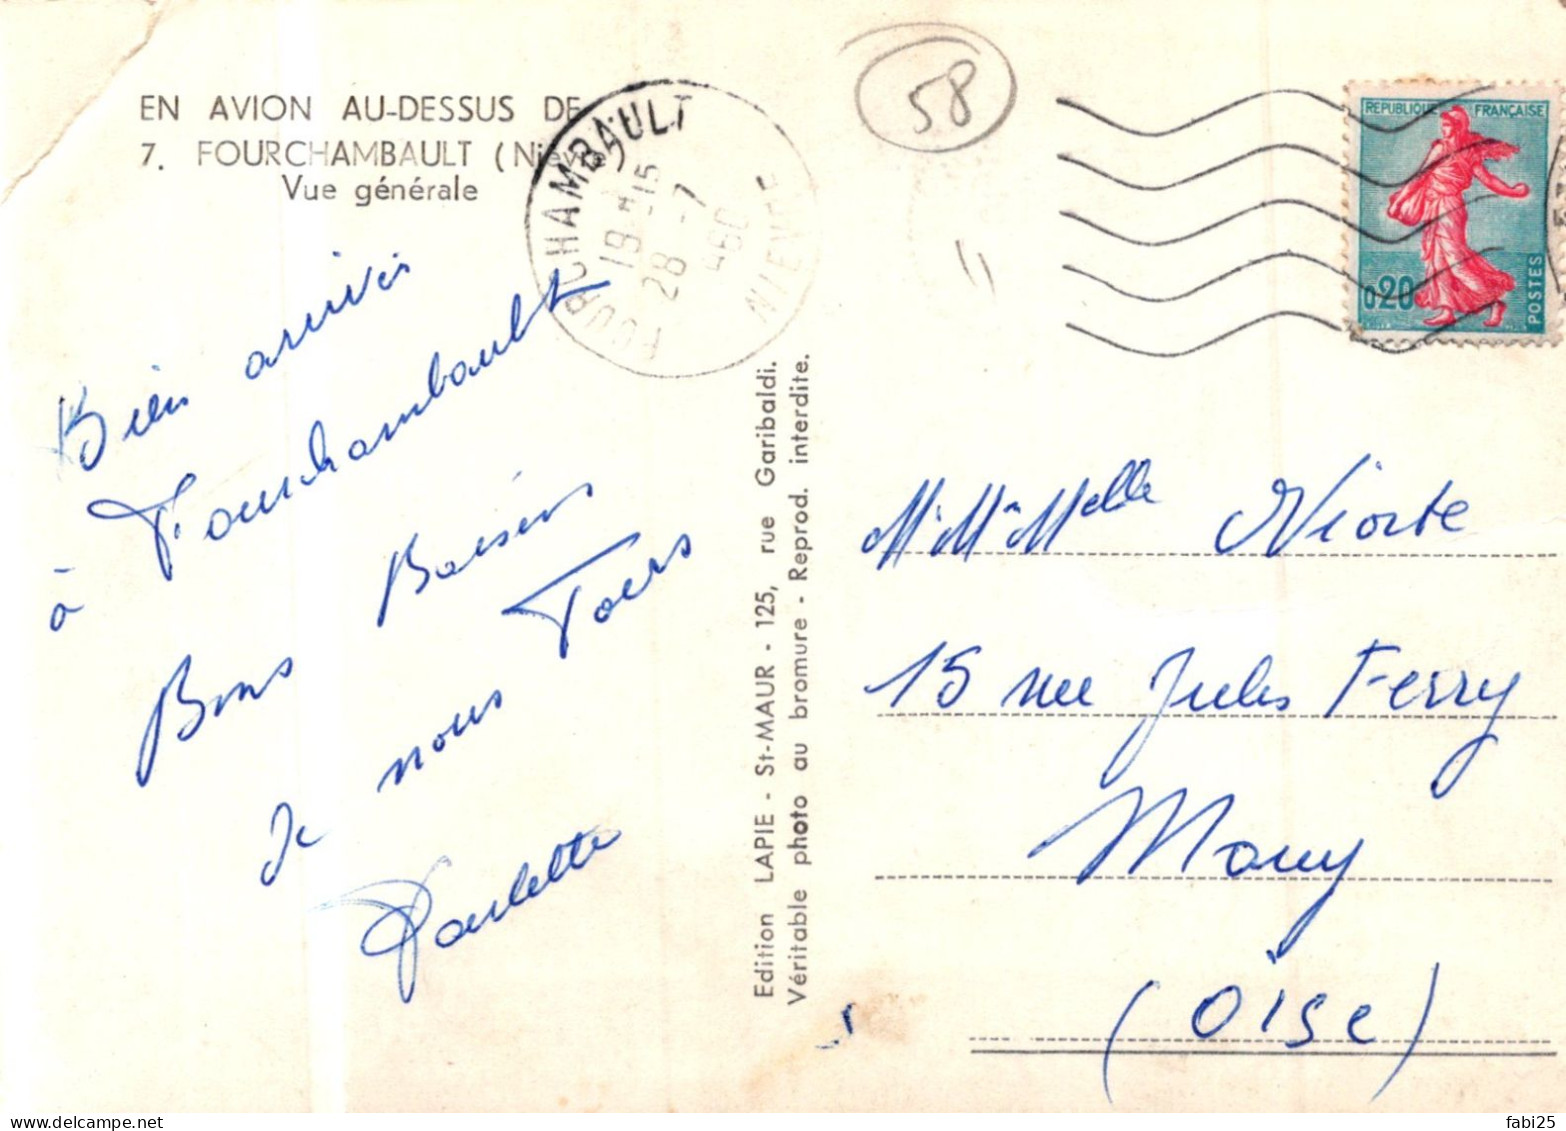 EN AVION AU-DESSUS DE
7. FOURCHAMBAULT (Nièvre)
Vue générale
FOURCHAMBAULT
19 H-15
28 -7
NIEVRE
58
REPUBLIQUE FRANÇAISE
0,20
POSTES
Bien arrivés
à Fourchambault
Bons Baisers
de nous Tous
Paulette
Edition LAPIE - St-MAUR - 125, rue Garibaldi.
Véritable photo au bromure - Reprod. interdite.
Mr Mme Melle Niorte
15 rue Jules Ferry
Mouy
(Oise)
fabi25